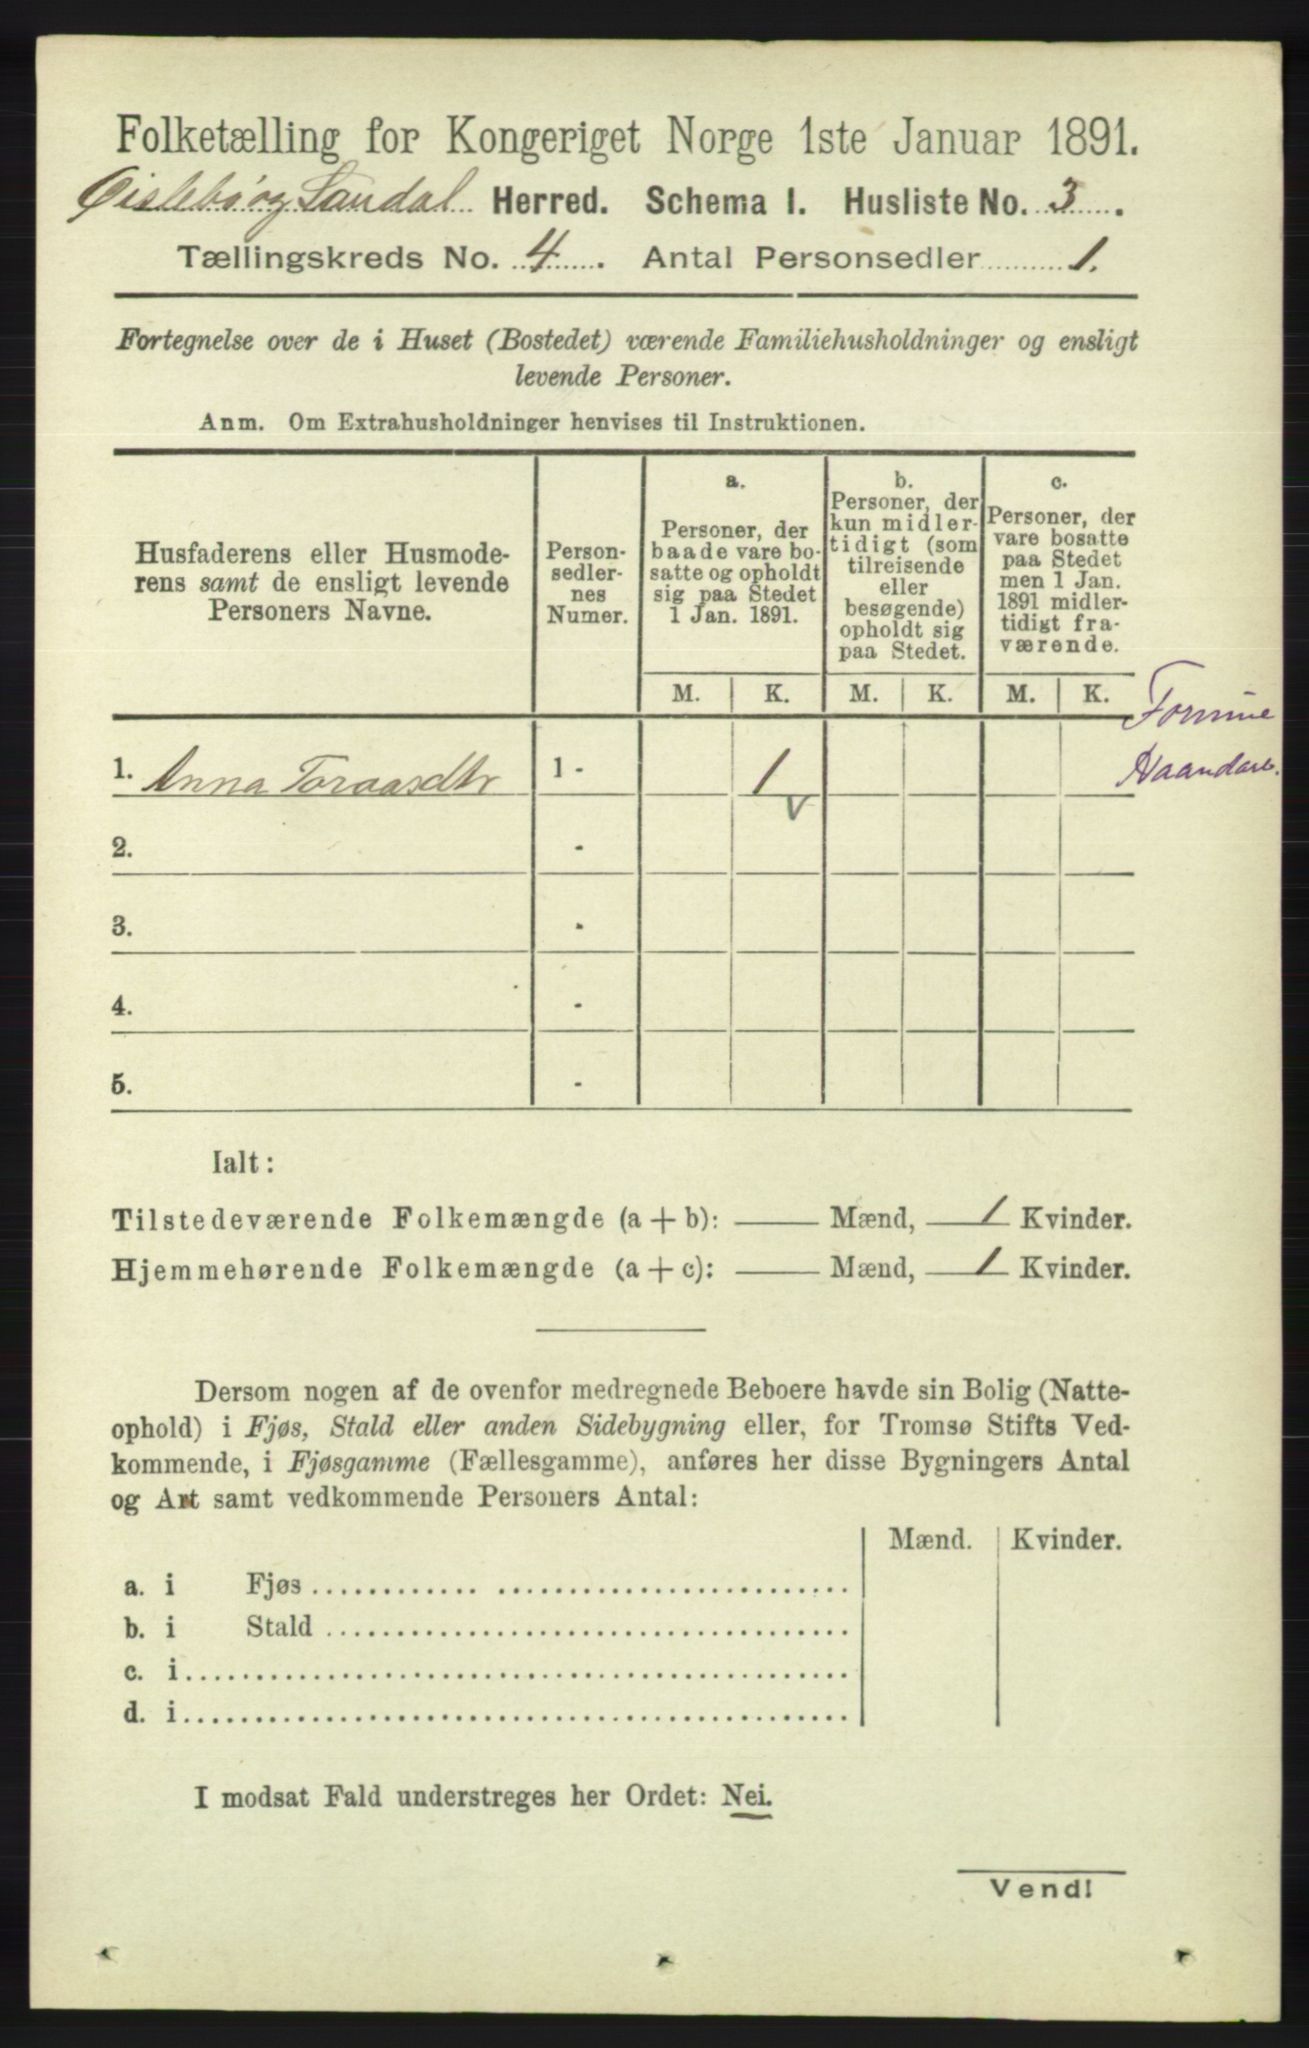 Folketælling for Kongeriget Norge 1ste Januar 1891.
Øislebø og Laudal Herred. Schema I. Husliste No. 3.
Tællingskreds No. 4. Antal Personsedler 1.
Fortegnelse over de i Huset (Bostedet) værende Familiehusholdninger og ensligt
levende Personer.
Anm. Om Extrahusholdninger henvises til Instruktionen.
Husfaderens eller Husmode-
rens samt de ensligt levende
Personers Navne.
Person-
sedler-
nes
Numer.
a.
Personer, der
baade vare bo-
satte og opholdt
sig paa Stedet
1 Jan. 1891.
b.
Personer, der
kun midler-
tidigt (som
tilreisende
eller
besøgende)
opholdt sig
paa Stedet.
c.
Personer, der
vare bosatte
paa Stedet
men 1 Jan.
1891 midler-
tidigt fra-
værende.
M. K. M. K. M. K.
1. Anna Toraasdtr 1 - 1
v
Haandarb.
2. -
3. -
4. -
5. -
Ialt:
Tilstedeværende Folkemængde (a + b): — Mænd, 1 Kvinder.
Hjemmehørende Folkemængde (a + c): — Mænd, 1 Kvinder.
Dersom nogen af de ovenfor medregnede Beboere havde sin Bolig (Natte-
ophold) i Fjøs, Stald eller anden Sidebygning eller, for Tromsø Stifts Ved-
kommende, i Fjøsgamme (Fællesgamme), anføres her disse Bygningers Antal
og Art samt vedkommende Personers Antal:
Mænd. Kvinder.
a. i Fjøs
b. i Stald
c. i
d. i
I modsat Fald understreges her Ordet: Nei.
Vend!